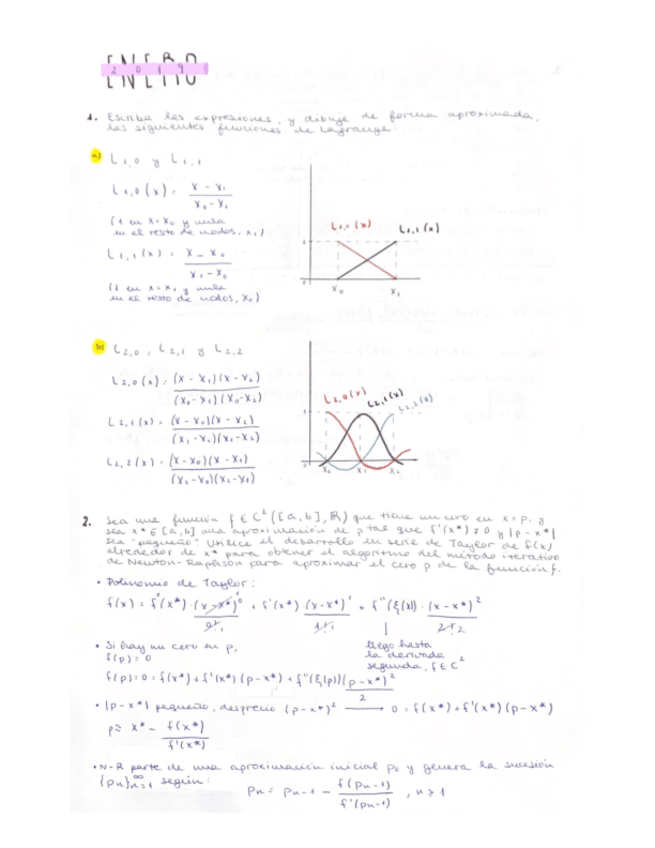 ENERO
2019
1. Escriba las expresiones, y dibuje de forma aproximada,
las siguientes funciones de Lagrange:
a) L1,0 y L1,1
L1,0(x) = (x - x1) / (x0 - x1)
(1 en x=x0 y nula
en el resto de nodos, x1)
L1,1(x) = (x - x0) / (x1 - x0)
(1 en x=x1 y nula
en el resto de nodos, x0)
L1,0(x) L1,1(x)
1
0
x0 x1
b) L2,0, L2,1 y L2,2
L2,0(x) = (x - x1)(x - x2) / (x0 - x1)(x0 - x2)
L2,1(x) = (x - x0)(x - x2) / (x1 - x0)(x1 - x2)
L2,2(x) = (x - x0)(x - x1) / (x2 - x0)(x2 - x1)
L2,0(x) L2,1(x) L2,2(x)
1
x0 x1 x2
2. Sea una función f ∈ C²([a,b], ℝ) que tiene un cero en x=p. y
sea x* ∈ [a,b] una aproximación de p tal que f'(x*) ≠ 0 y |p - x*|
sea "pequeño". Utilice el desarrollo en serie de Taylor de f(x)
alrededor de x* para obtener el algoritmo del método iterativo
de Newton-Raphson para aproximar el cero p de la función f.
• Polinomio de Taylor:
f(x) = f(x*) · (x - x*)⁰ / 0! + f'(x*) (x - x*)¹ / 1! + f''(ξ(x)) · (x - x*)² / 2!
llego hasta
la derivada
segunda, f ∈ C²
• Si hay un cero en p,
f(p) = 0
f(p) = 0 = f(x*) + f'(x*) (p - x*) + f''(ξ(p)) (p - x*)² / 2
• |p - x*| pequeño, desprecio (p - x*)² ⟶ 0 = f(x*) + f'(x*) (p - x*)
p ≈ x* - f(x*) / f'(x*)
• N-R parte de una aproximación inicial p0 y genera la sucesión
{pn}∞n=1 según:
pn = pn-1 - f(pn-1) / f'(pn-1), n ≥ 1